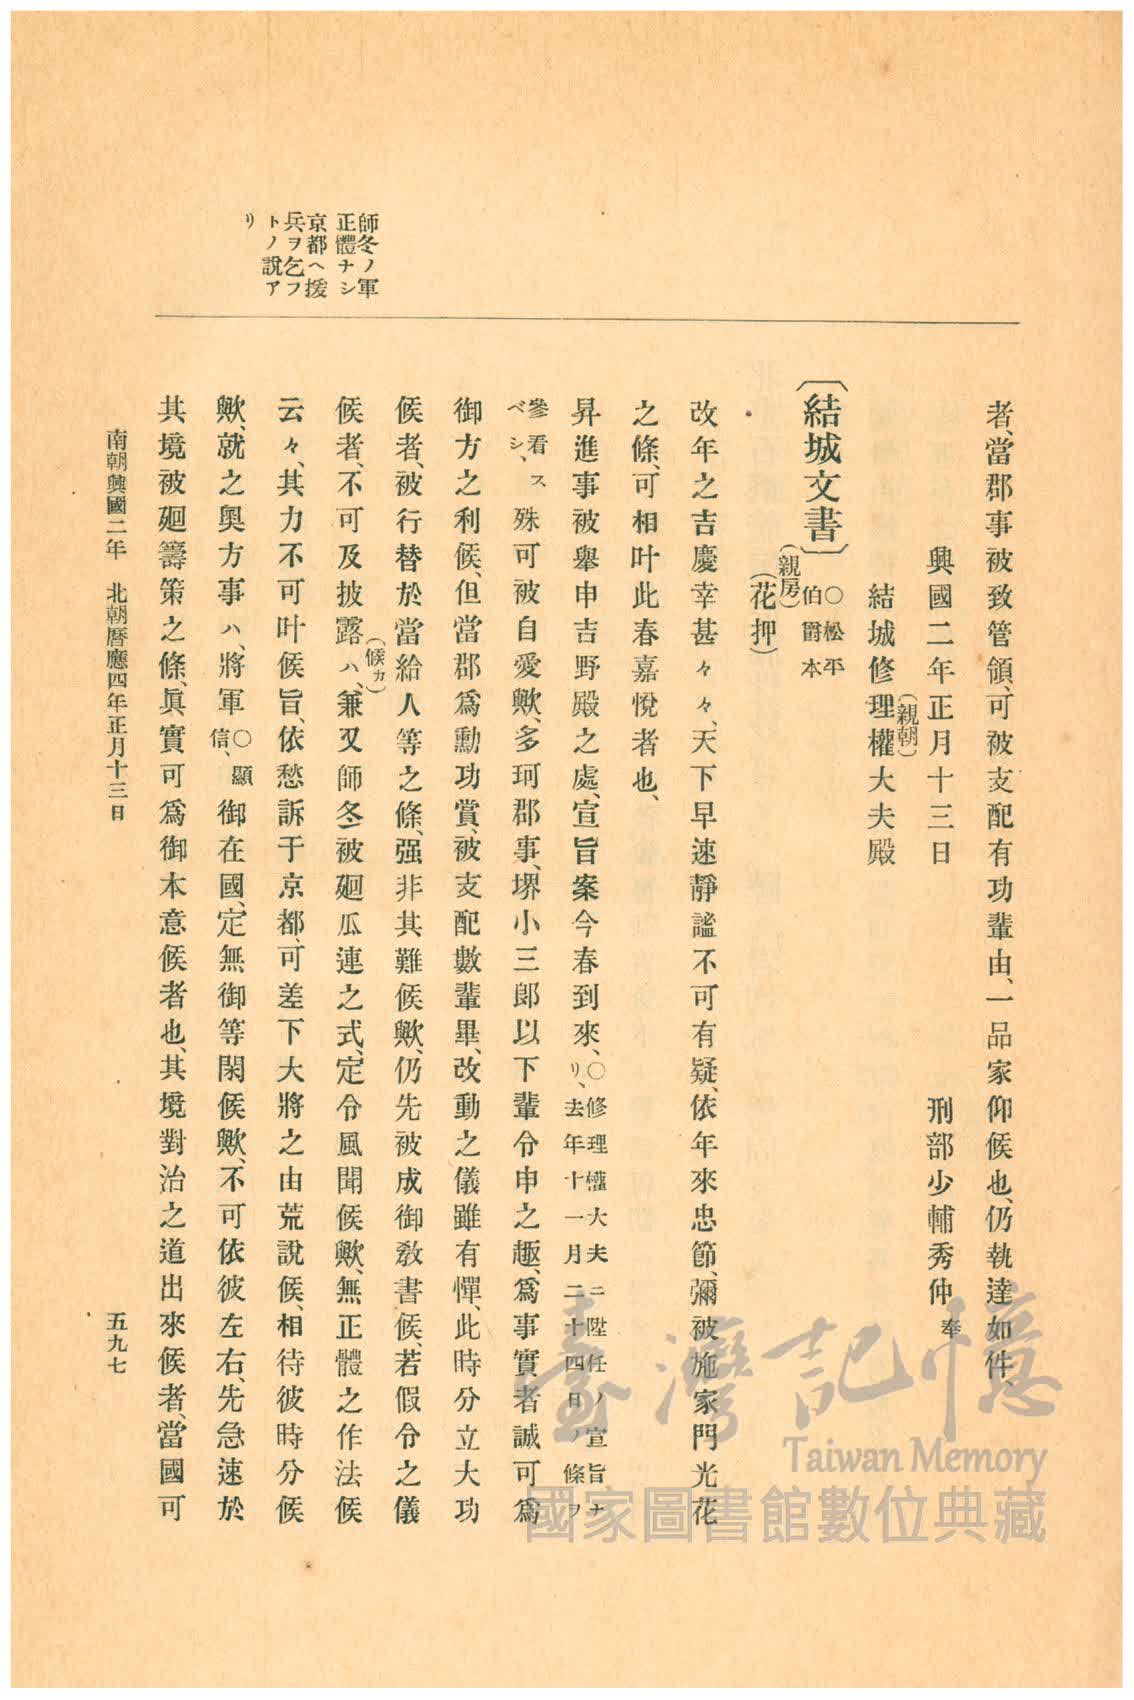 師冬ノ軍
正體ナシ
京都ヘ援
兵ヲ乞フ
トノ說ア
リ
者、當郡事被致管領、可被支配有功輩由、一品家仰候也、仍執達如件、
興國二年正月十三日　刑部少輔秀仲奉
結城修理權大夫殿
(親朝)
〔結城文書〕○松平
伯爵本
(親房)
(花押)
改年之吉慶幸甚々々、天下早速靜謐不可有疑、依年來忠節、彌被施家門光花
之條、可相叶此春嘉悅者也、
昇進事被擧申吉野殿之處、宣旨案今春到來、○修理權大夫ニ陞任ノ宣旨ナ
リ、去年十一月二十四日ノ條ヲ
參看ス
ベシ、
殊可被自愛歟、多珂郡事、堺小三郞以下輩令申之趣、爲事實者誠可爲
御方之利候、但當郡爲勳功賞、被支配數輩畢、改動之儀雖有憚、此時分立大功
候者、被行替於當給人等之條、强非其難候歟、仍先被成御敎書候、若假令之儀
(候カ)
候者、不可及披露ハ、兼又師冬被廻瓜連之式、定令風聞候歟、無正體之作法候
云々、其力不可叶候旨、依愁訴于京都、可差下大將之由荒說候、相待彼時分候
歟、就之奧方事ハ、將軍○顯
信、
御在國、定無御等閑候歟、不可依彼左右、先急速於
其境被廻籌策之條、眞實可爲御本意候者也、其境對治之道出來候者、當國可
南朝興國二年　北朝曆應四年正月十三日
五九七
臺灣記憶
Taiwan Memory
國家圖書館數位典藏